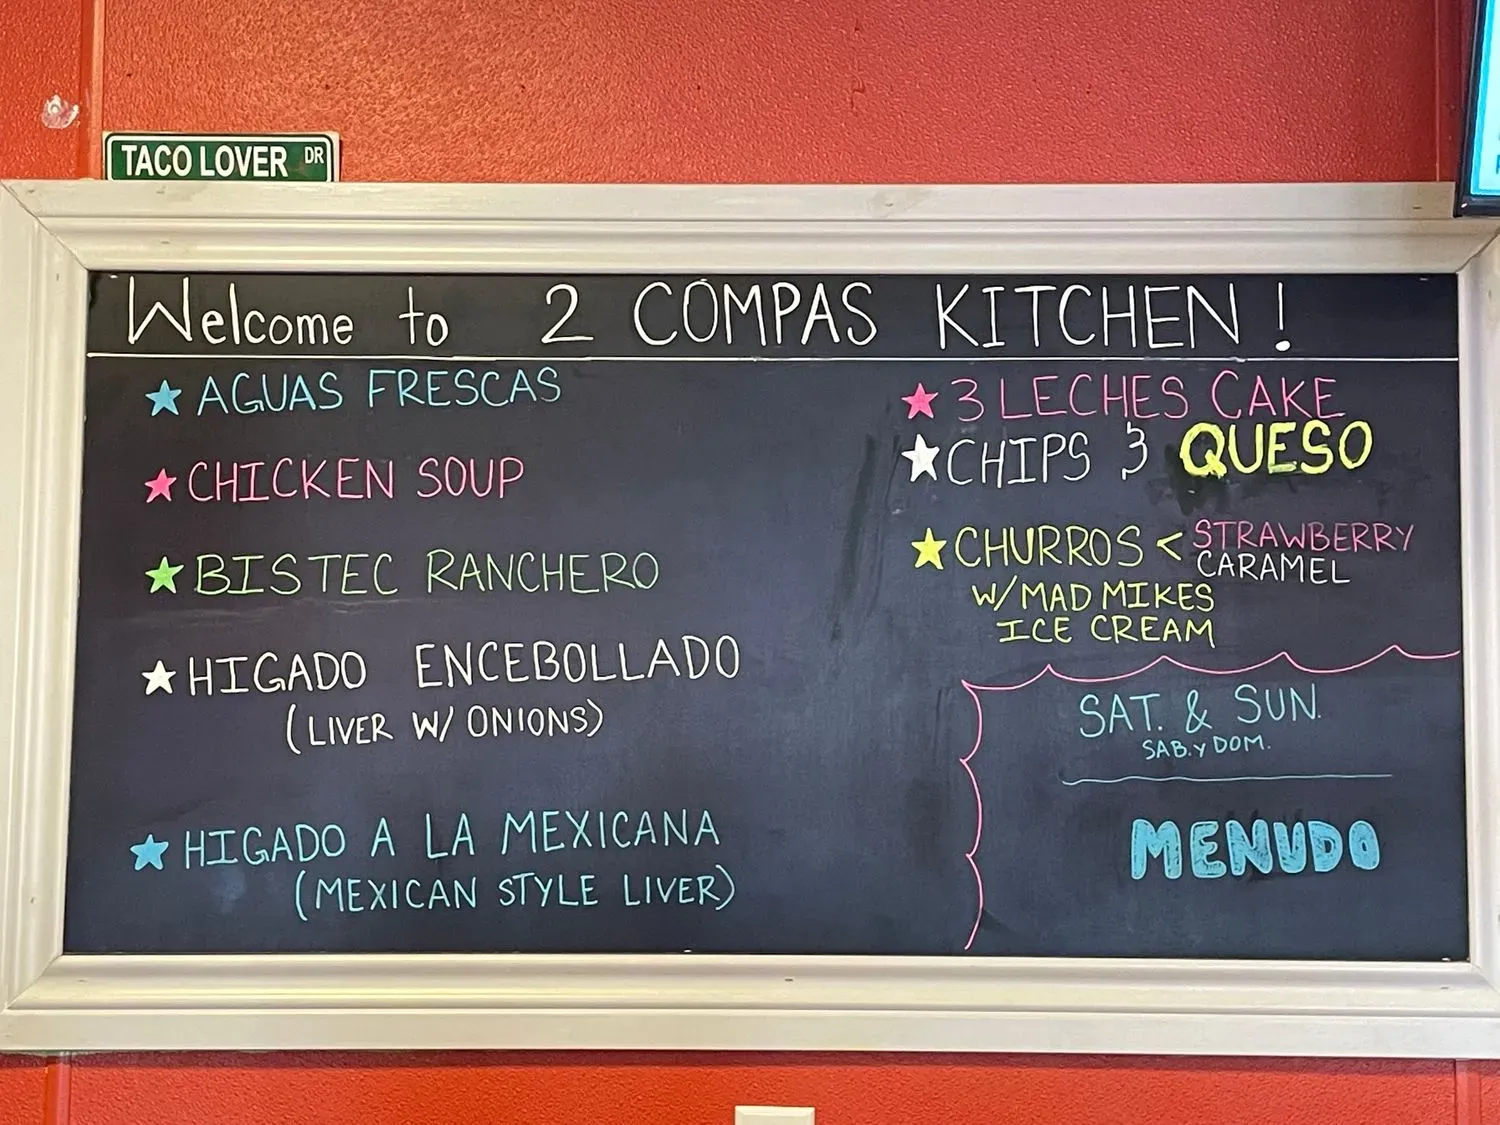 TACO LOVER DR
Welcome to 2 COMPAS KITCHEN!
AGUAS FRESCAS
CHICKEN SOUP
BISTEC RANCHERO
HIGADO ENCEBOLLADO
(LIVER W/ ONIONS)
HIGADO A LA MEXICANA
(MEXICAN STYLE LIVER)
3 LECHES CAKE
CHIPS & QUESO
CHURROS < STRAWBERRY
CARAMEL
W/MAD MIKES
ICE CREAM
SAT. & SUN.
SAB. Y DOM.
MENUDO